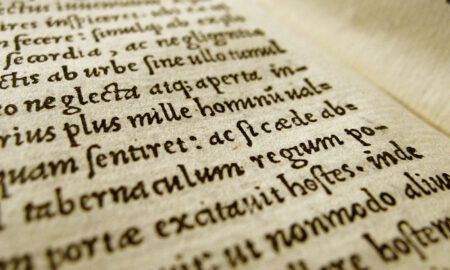 ctus in
ires inspiceret: simulq; ab exple
n fecere: simulq; ab
secordia, ac negligentia
ctis ab urbe sine ullo tumul
eo neglecta atq; aperta in-
rius plus mille hominũ ual-
quam sentiret: ac si cæde ab-
tabernaculum regium po-
m portæ excitauit hostes. inde
ut nonmodo alius
hostem